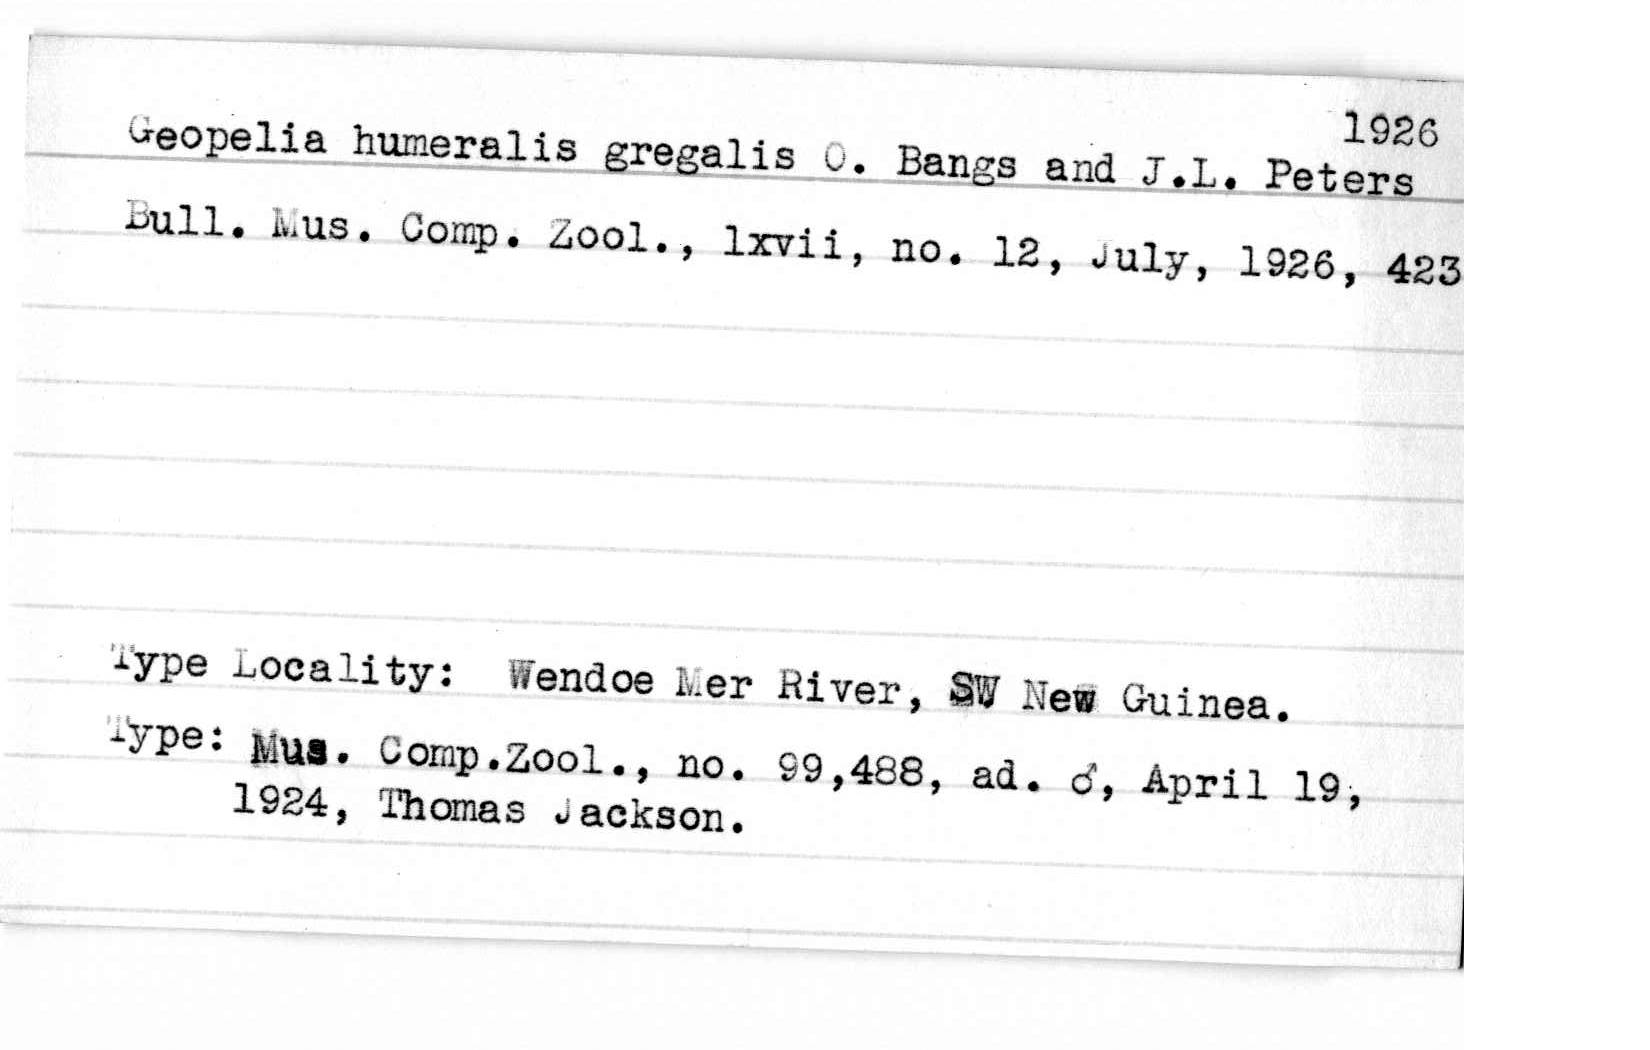 1926
Geopelia humeralis gregalis O. Bangs and J.L. Peters
Bull. Mus. Comp. Zool., lxvii, no. 12, July, 1926, 423
Type Locality: Wendoe Mer River, SW New Guinea.
Type: Mus. Comp.Zool., no. 99,488, ad. ♂, April 19,
1924, Thomas Jackson.